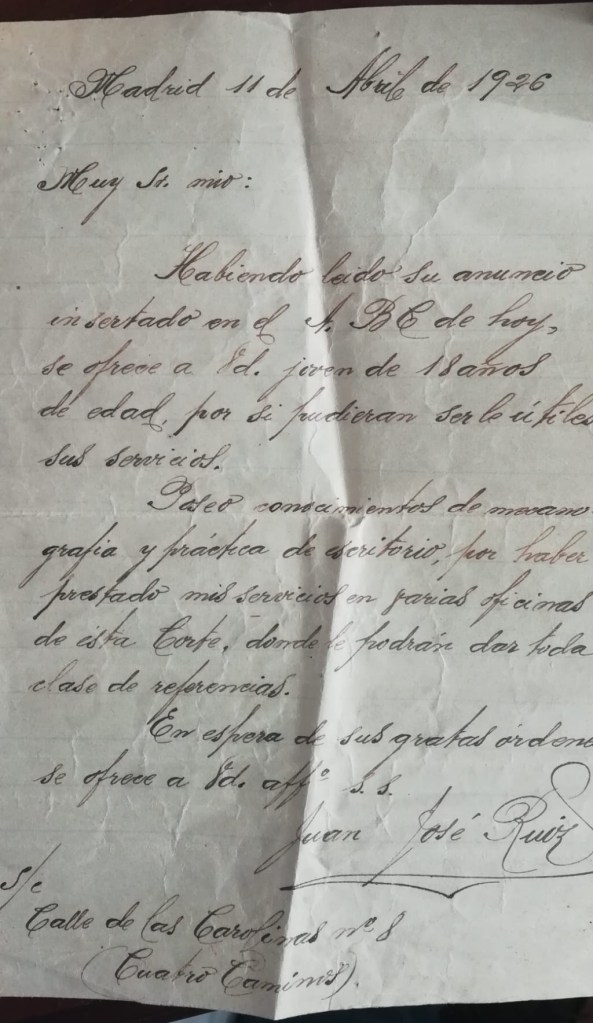 Madrid 11 de Abril de 1926
Muy Sr. mio:
Habiendo leido su anuncio
insertado en el A. B C de hoy,
se ofrece a Vd. joven de 18 años
de edad, por si pudieran serle útiles
sus servicios.
Poseo conocimientos de mecano-
grafia y práctica de escritorio, por haber
prestado mis servicios en varias oficinas
de ésta Corte, donde le podrán dar toda
clase de referencias.
En espera de sus gratas órdene
se ofrece a Vd. affº s. s.
Juan José Ruiz
S/c
Calle de las Carolinas nº 8
(Cuatro Caminos).